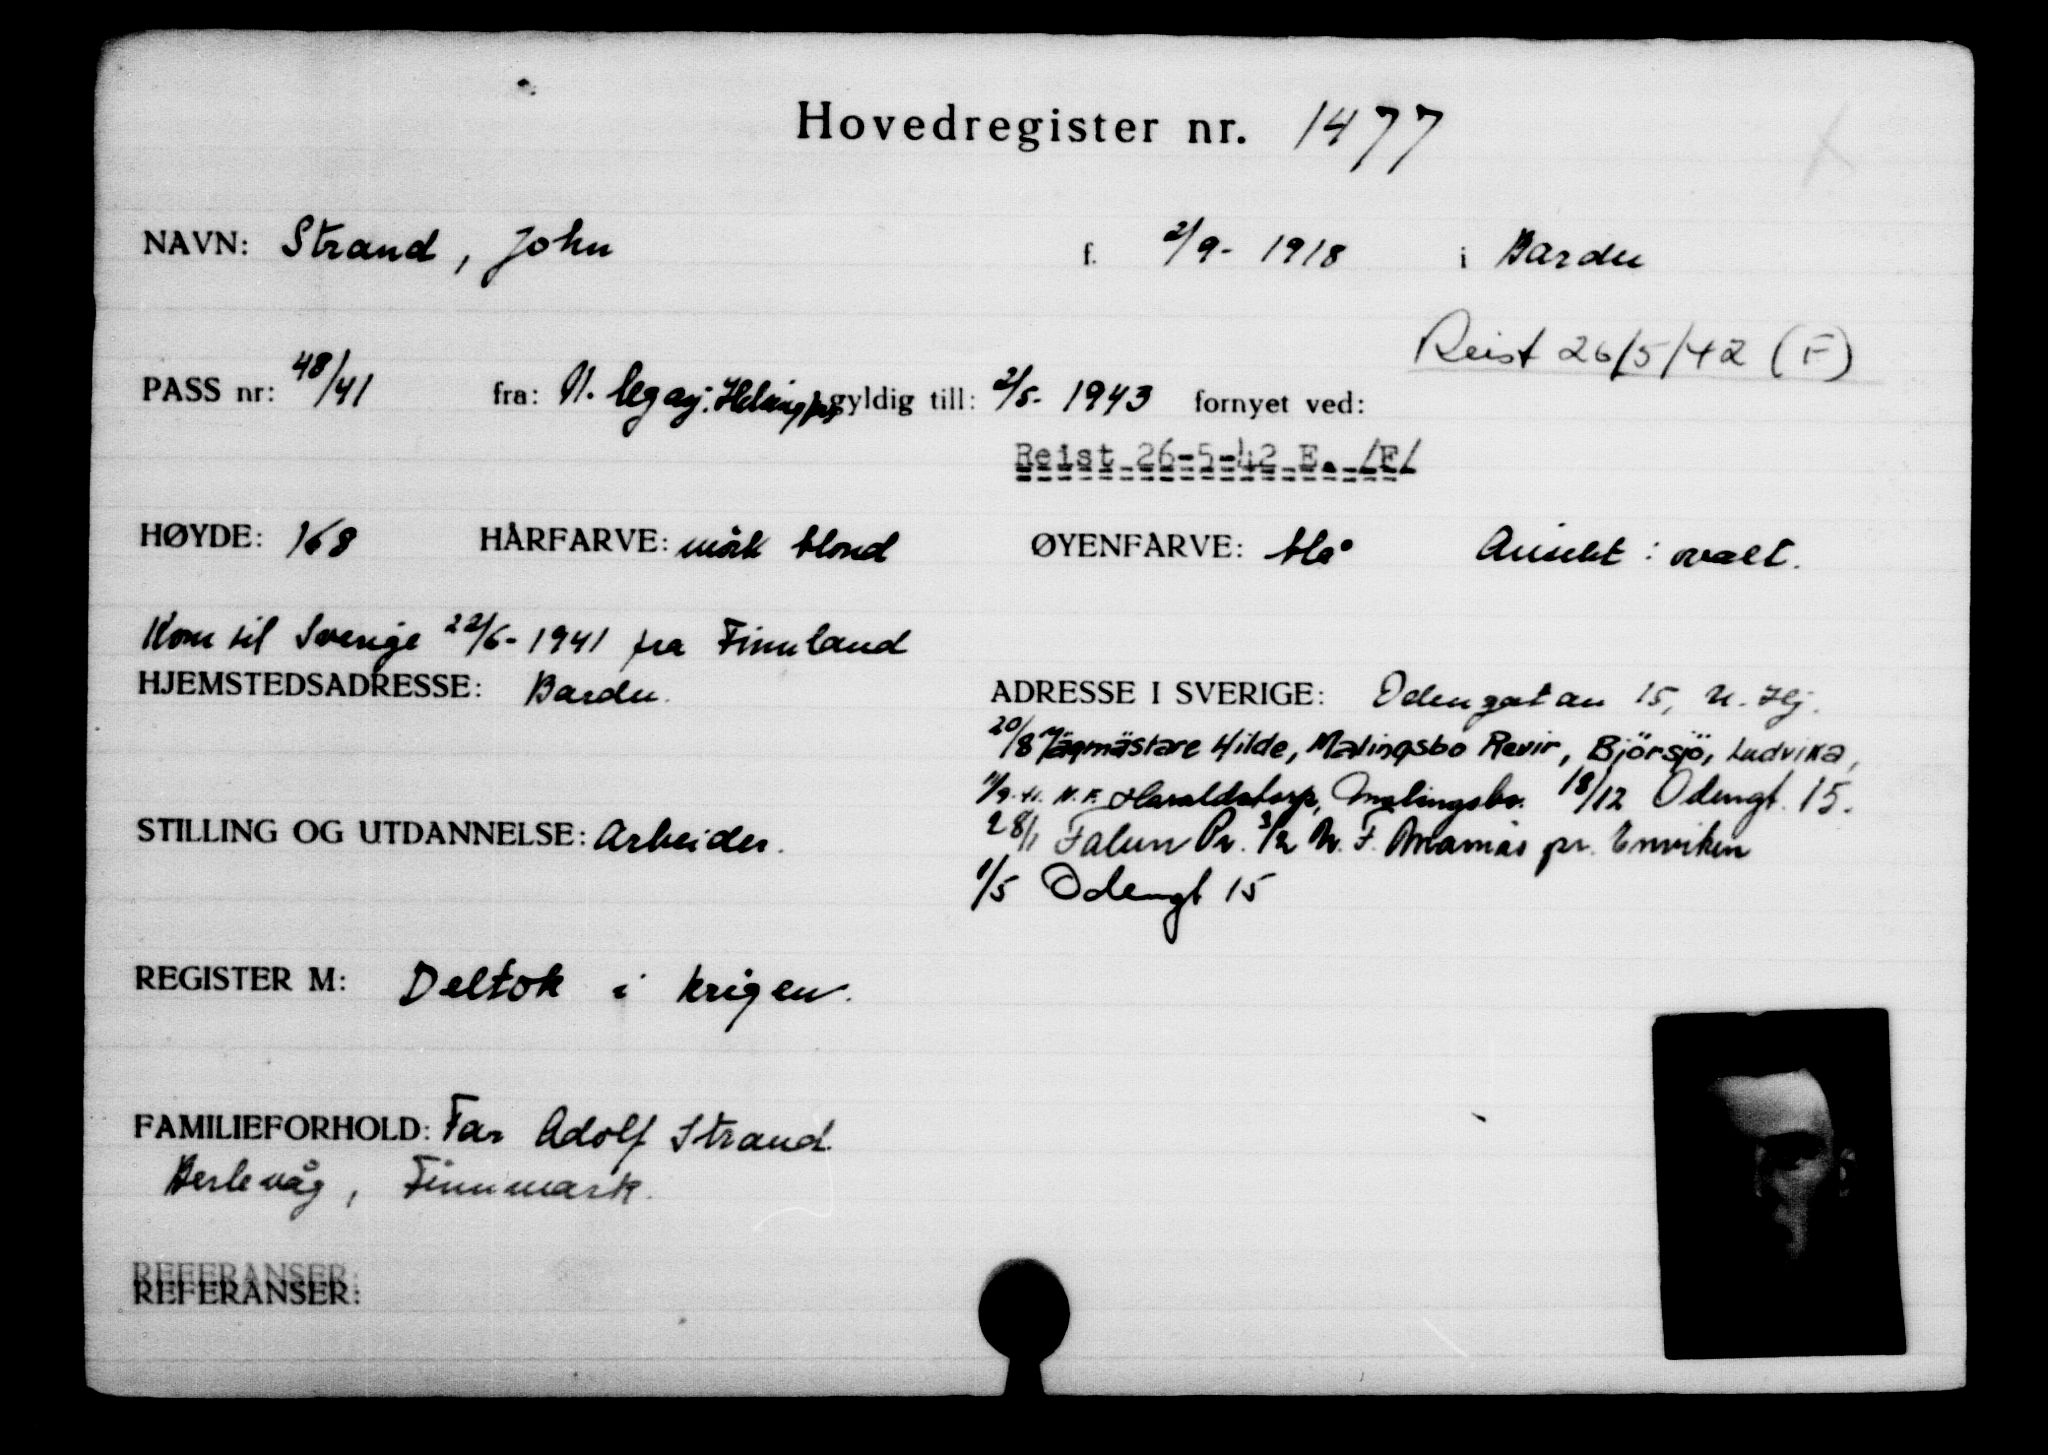 Hovedregister nr. 1477
NAVN: Strand, John f. 2/9- 1918 i Bardu
Reist 26/5/42 (F)
PASS nr: 48/41 fra: N. legasj. Helsingfors gyldig till: 2/5- 1943 fornyet ved:
Reist 26-5-42 E. /F/
HØYDE: 168 HÅRFARVE: mörk blond ØYENFARVE: blå Ansikt: ovalt.
Kom til Sverige 22/6- 1941 fra Finnland
HJEMSTEDSADRESSE: Bardu. ADRESSE I SVERIGE: Odengatan 15, n. Hj.
20/8 Jägmästare Hilde, Malingsbo Revir, Björsjö, Ludvika,
11/9-41. N.F. Haraldstorp, Malingsbo. 18/12 Odengt. 15.
STILLING OG UTDANNELSE: Arbeider. 28/1 Falun Pr. 3/2 N.F. pr. Enviken
1/5 Odengt 15
REGISTER M: Deltok i krigen.
FAMILIEFORHOLD: Far Adolf Strand
Berlevåg, Finnmark.
REFERANSER:
REFERANSER: